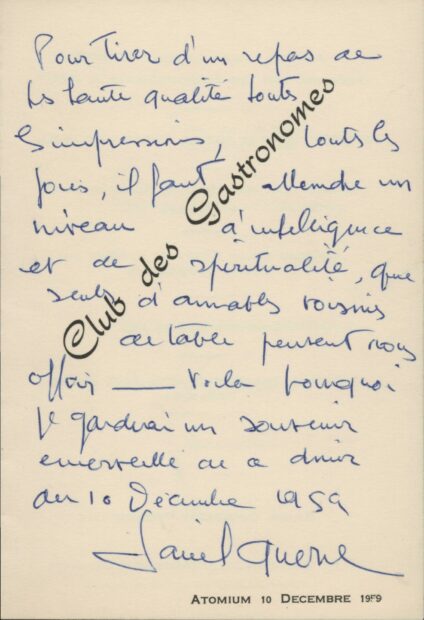 Pour tirer d'un repas de
très haute qualité toutes
les impressions, toutes les
joies, il faut atteindre un
niveau d'intelligence
et de spiritualité, que
seuls d'aimables voisins
de table peuvent vous
offrir — Voila pourquoi
je garderai un souvenir
emerveillé de ce diner
du 10 Décembre 1959
Club des Gastronomes
ATOMIUM 10 DECEMBRE 1959